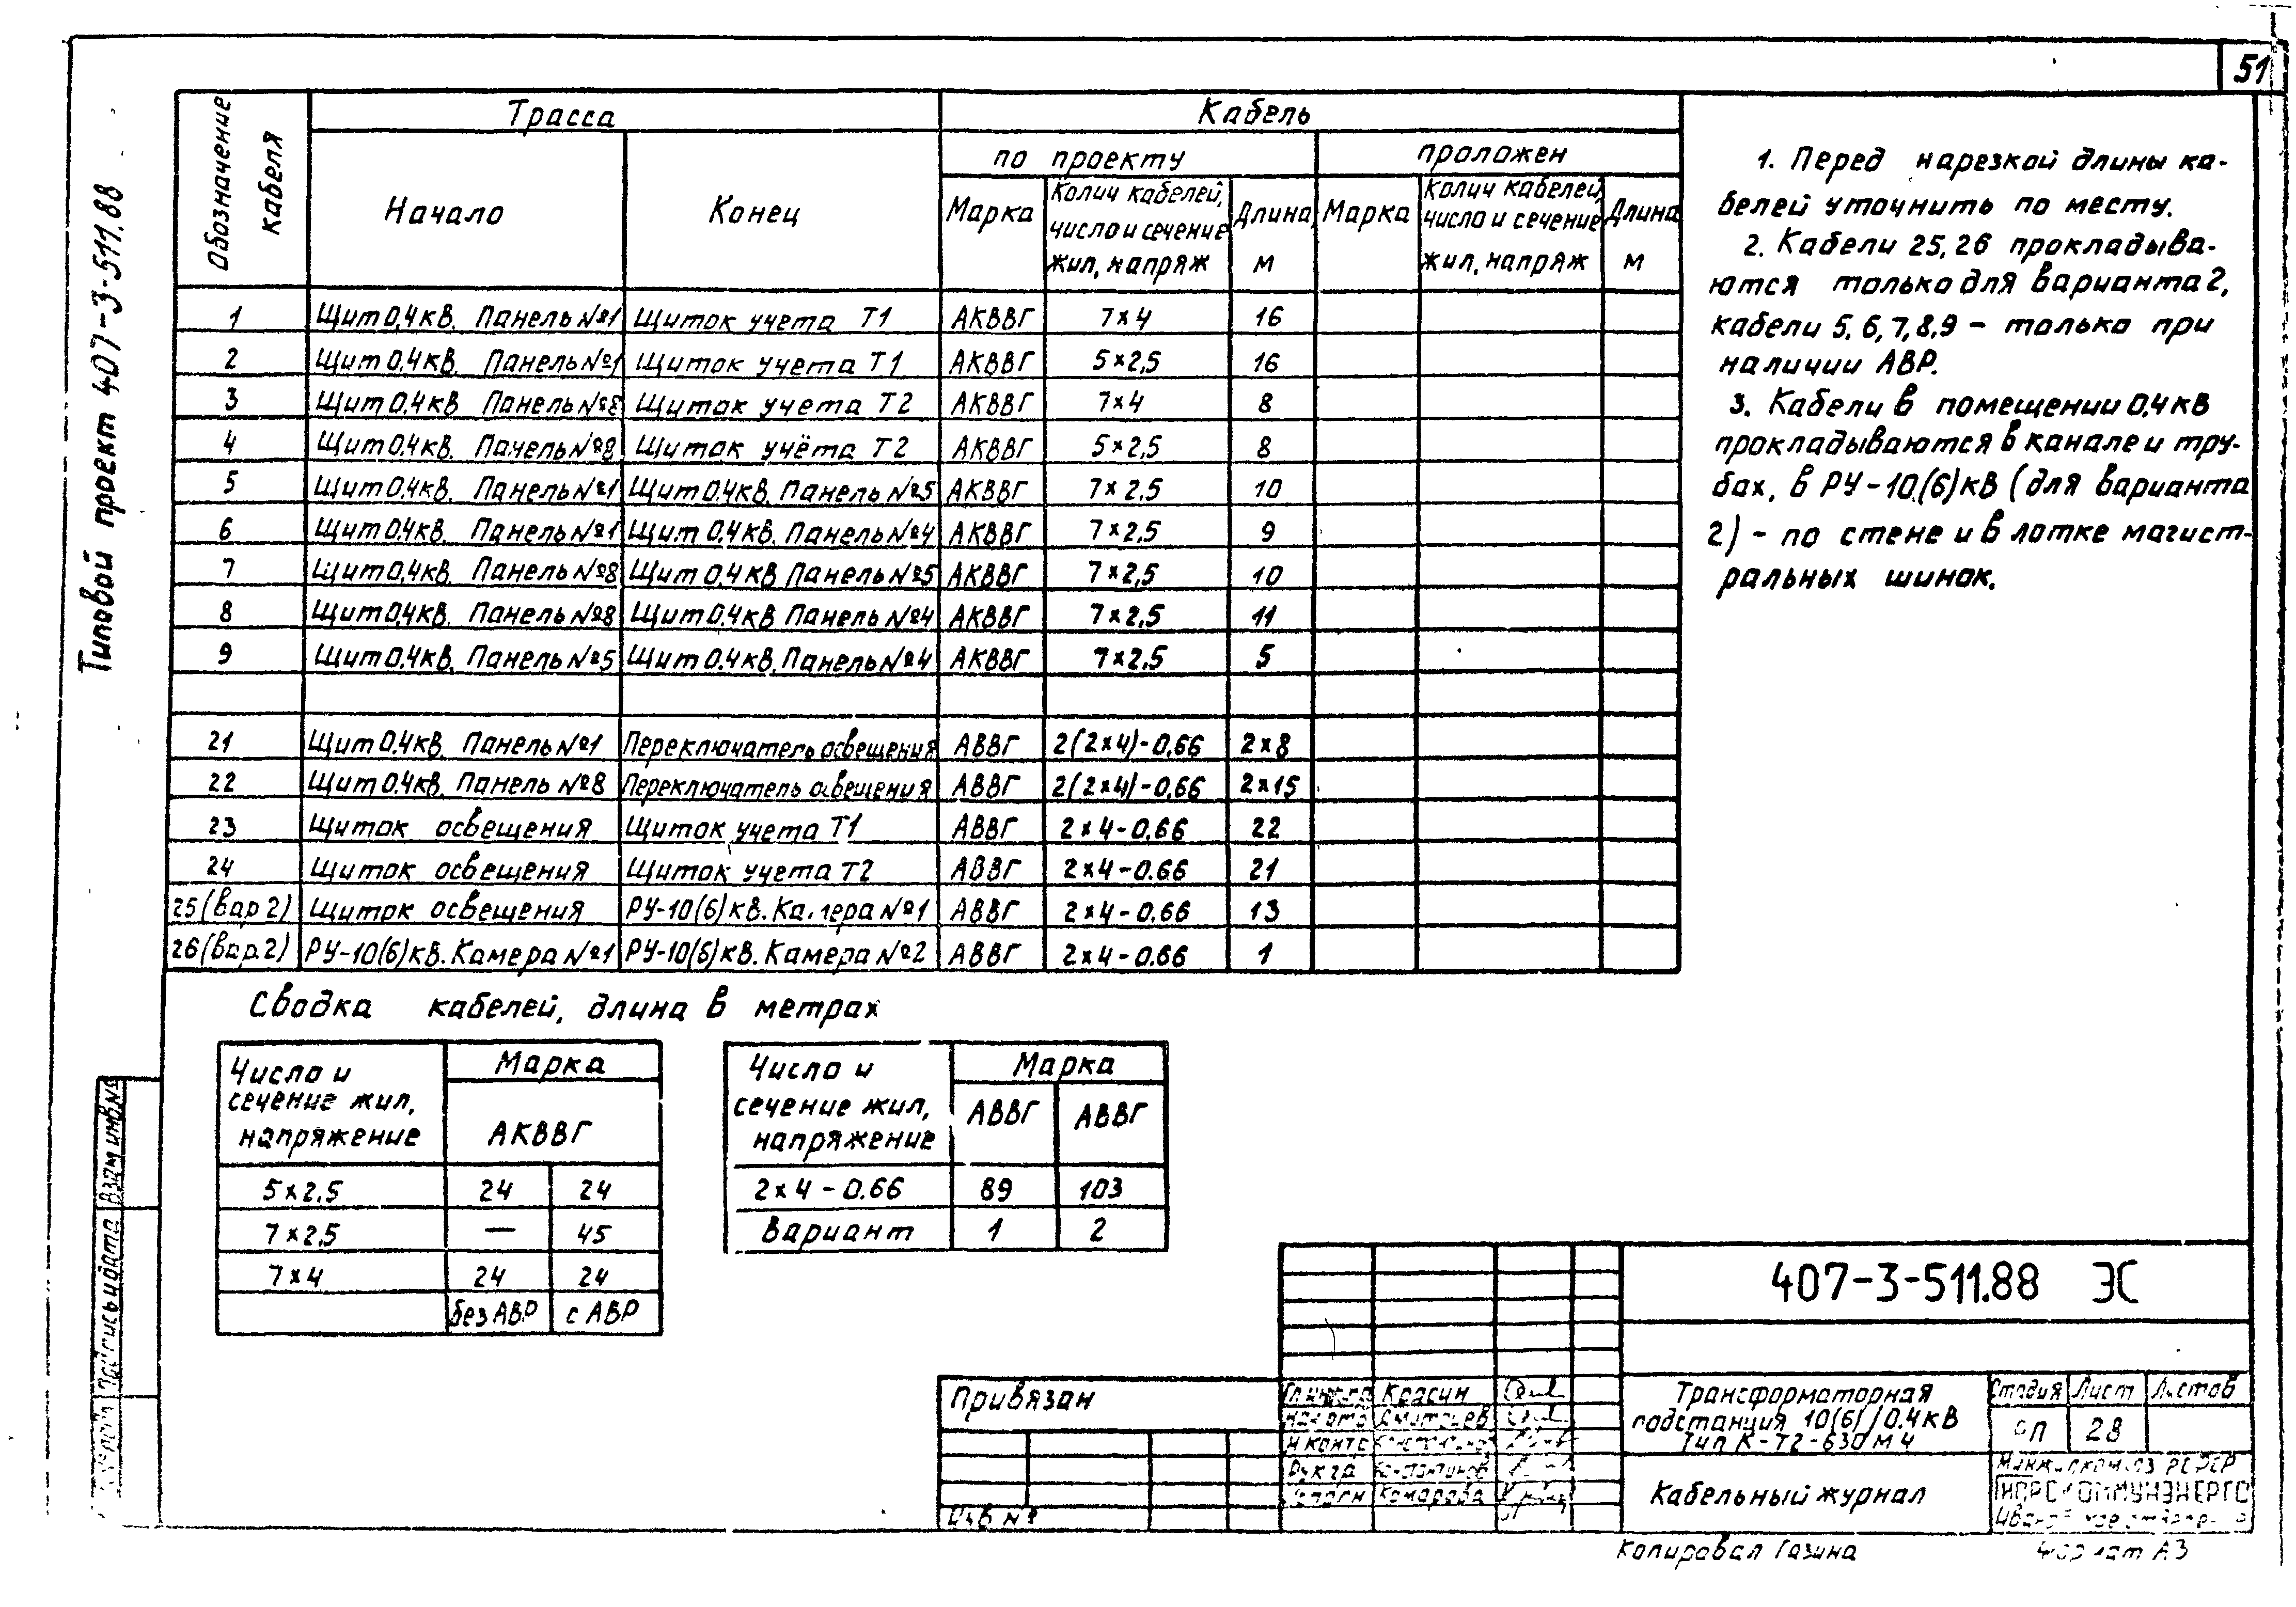 51
Типовой проект 407-3-511.88
Обозначение кабеля
Трасса
Кабель
Начало
Конец
по проекту
проложен
Марка
Колич кабелей, число и сечение жил, напряж
Длина м
Марка
Колич кабелей, число и сечение жил, напряж
Длина м
1 Щит 0,4кВ. Панель №1 Щиток учета Т1 АКВВГ 7×4 16
2 Щит 0,4кВ. Панель №1 Щиток учета Т1 АКВВГ 5×2,5 16
3 Щит 0,4кВ Панель №8 Щиток учета Т2 АКВВГ 7×4 8
4 Щит 0,4кВ. Панель №8 Щиток учёта Т2 АКВВГ 5×2,5 8
5 Щит 0,4кВ. Панель №1 Щит 0,4кВ. Панель №5 АКВВГ 7×2,5 10
6 Щит 0,4кВ. Панель №1 Щит 0,4кВ. Панель №4 АКВВГ 7×2,5 9
7 Щит 0,4кВ. Панель №8 Щит 0,4кВ Панель №5 АКВВГ 7×2,5 10
8 Щит 0,4кВ. Панель №8 Щит 0,4кВ Панель №4 АКВВГ 7×2,5 11
9 Щит 0,4кВ. Панель №5 Щит 0,4кВ. Панель №4 АКВВГ 7×2,5 5
21 Щит 0,4кВ. Панель №1 Переключатель освещения АВВГ 2(2×4)-0,66 2×8
22 Щит 0,4кВ. Панель №8 Переключатель освещения АВВГ 2(2×4)-0,66 2×15
23 Щиток освещения Щиток учета Т1 АВВГ 2×4-0,66 22
24 Щиток освещения Щиток учета Т2 АВВГ 2×4-0.66 21
25(вар 2) Щиток освещения РУ-10(6)кВ. Камера №1 АВВГ 2×4-0.66 13
26(вар.2) РУ-10(6)кВ. Камера №1 РУ-10(6)кВ. Камера №2 АВВГ 2×4-0.66 1
1. Перед нарезкой длины ка-
белей уточнить по месту.
2. Кабели 25,26 прокладыва-
ются только для варианта 2,
кабели 5,6,7,8,9 - только при
наличии АВР.
3. Кабели в помещении 0.4кВ
прокладываются в канале и тру-
бах, в РУ-10(6)кВ (для варианта
2) - по стене и в лотке магист-
ральных шинок.
Сводка кабелей, длина в метрах
Число и сечение жил, напряжение
Марка
АКВВГ
5×2,5 24 24
7×2,5 — 45
7×4 24 24
без АВР с АВР
Число и сечение жил, напряжение
Марка
АВВГ АВВГ
2×4-0.66 89 103
Вариант 1 2
Взам инв№
Подпись и дата
407-3-511.88 ЭС
Привязан
Инв №
Красин
Комарова
Трансформаторная
подстанция 10(6)/0.4кВ
Тип К-Т2-630 М4
Стадия Лист Листов
РП 28
Кабельный журнал
ГИПРОКОММУНЭНЕРГО
Копировал Газина
Формат А3